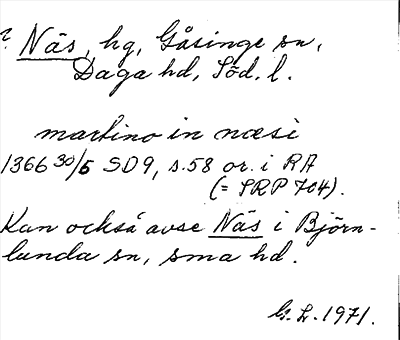 ? Näs, hg, Gåsinge sn,
Daga hd, Söd. l.
martino in næsi
1366 30/5 SD9, s.58 or. i RA
(= SRP 704).
Kan också avse Näs i Björn-
lunda sn, sma hd.
G. L. 1971.